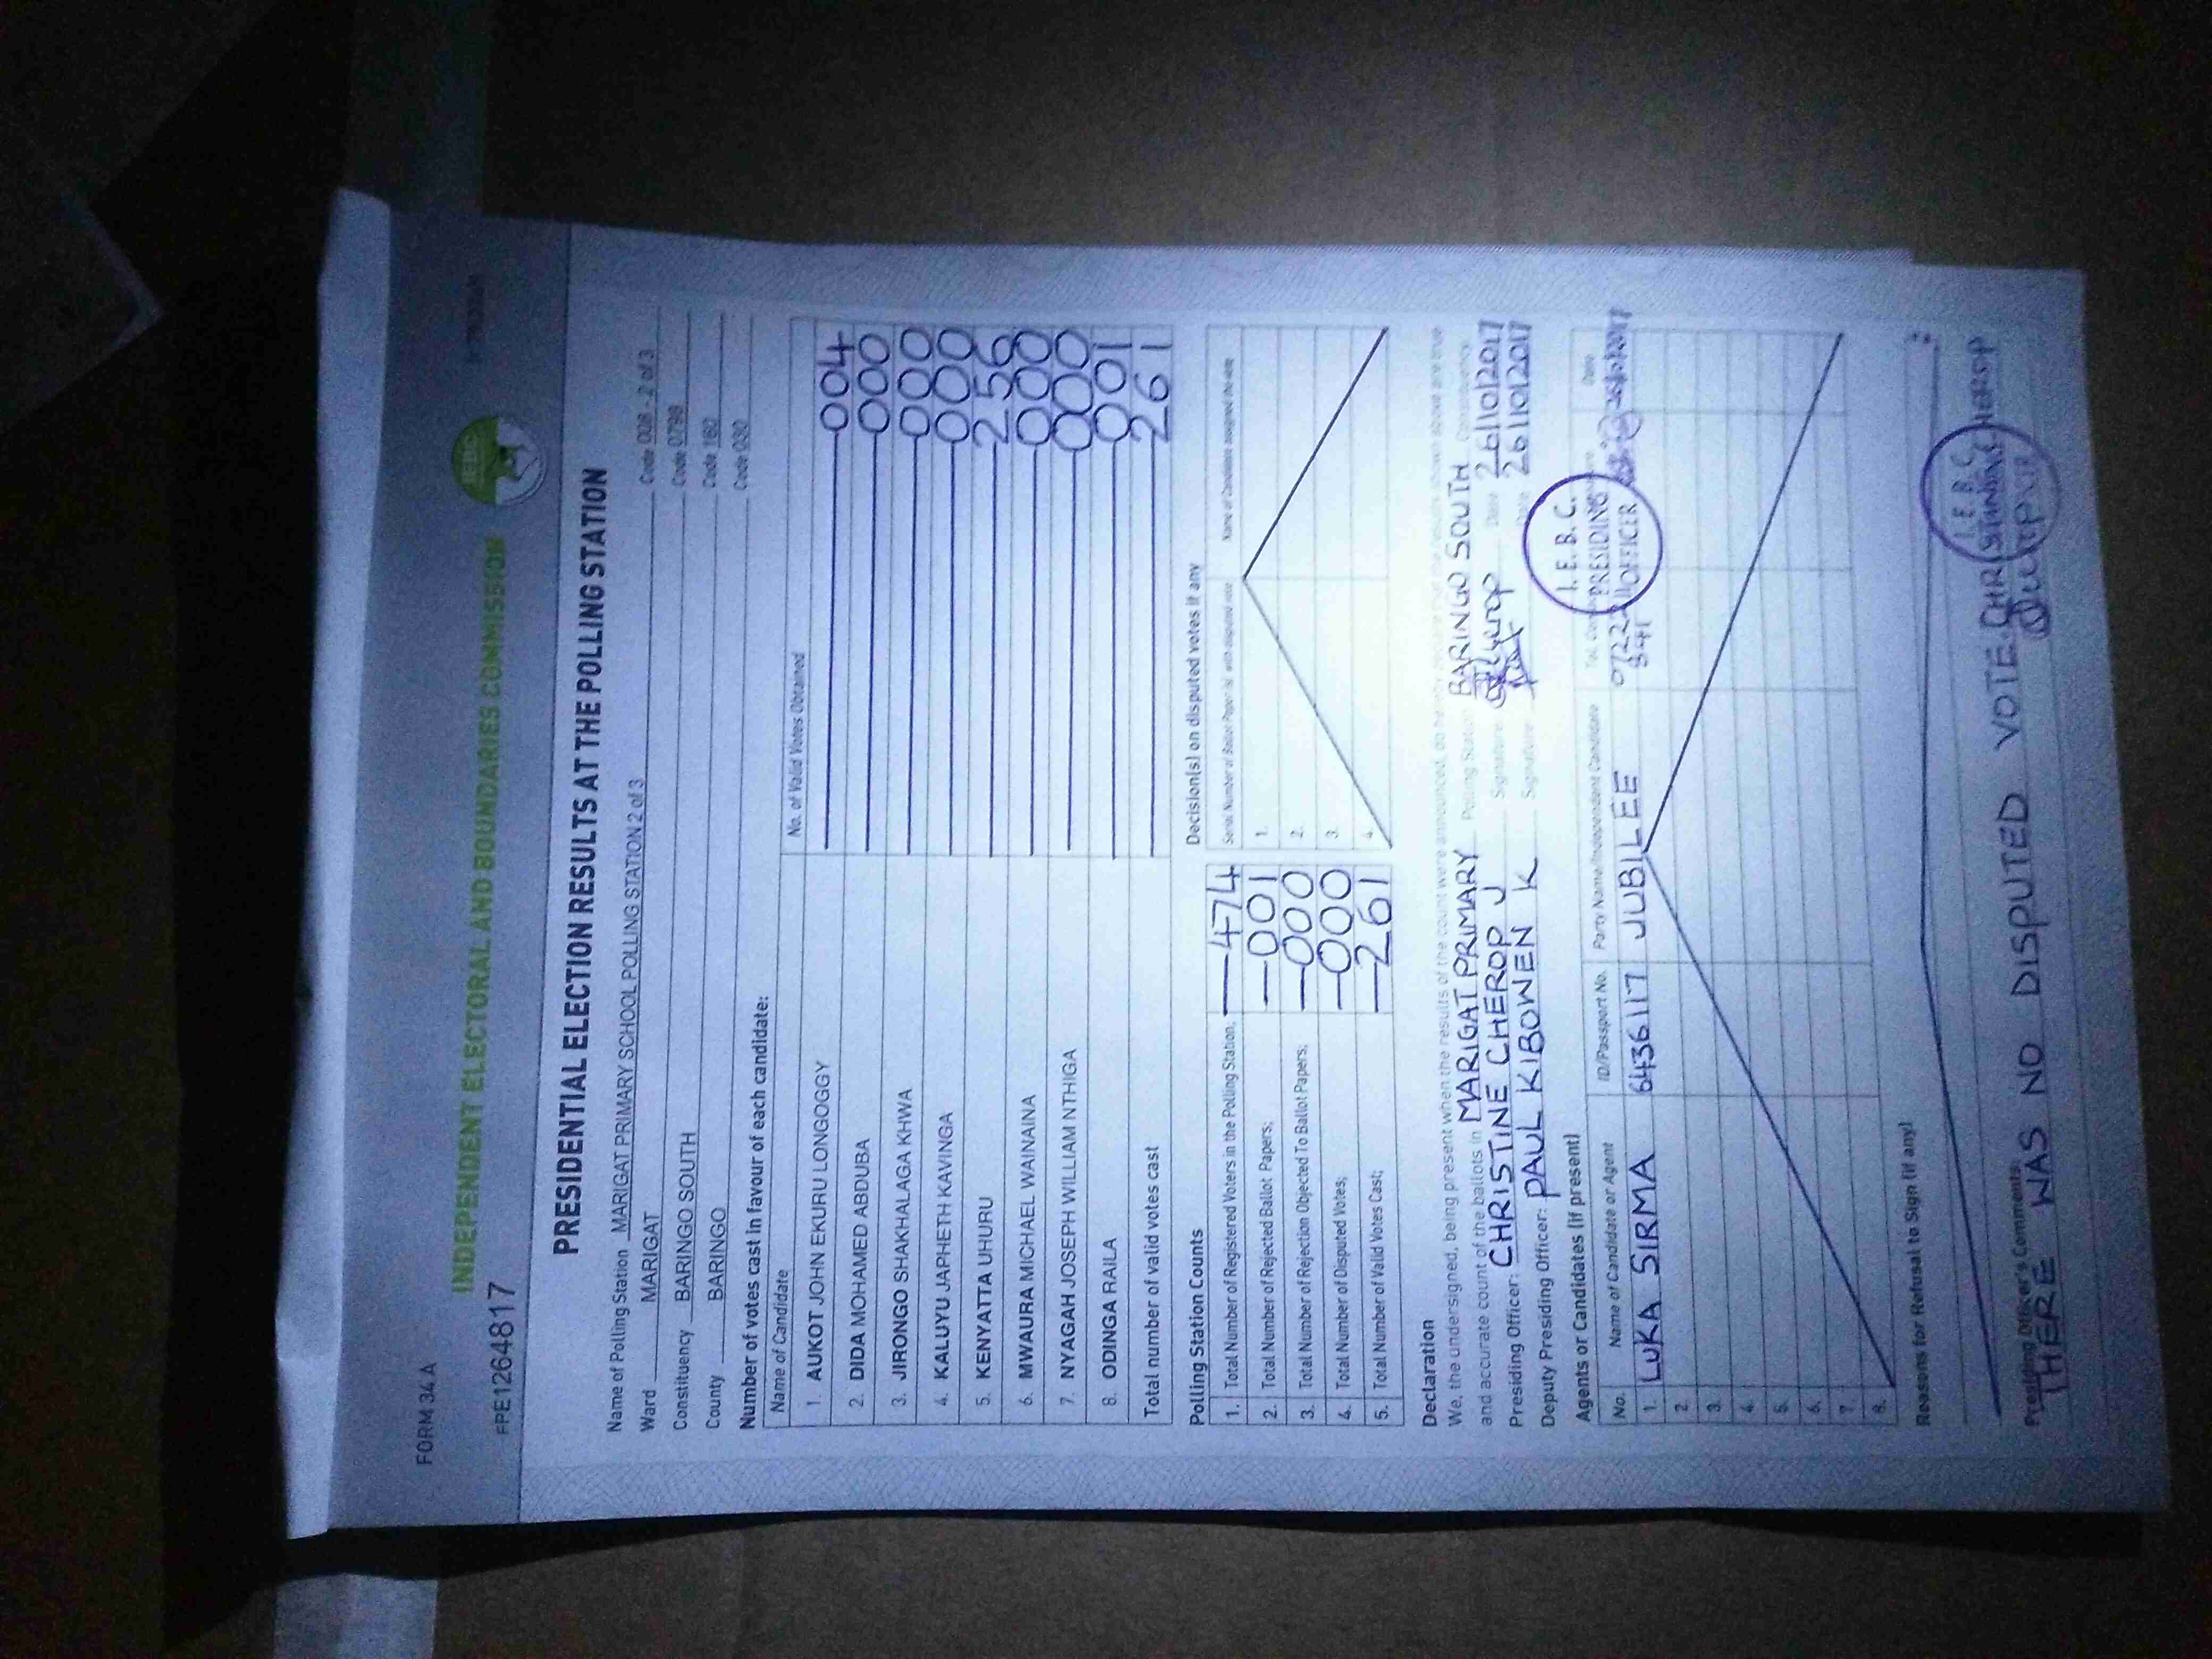 FORM 34 A
INDEPENDENT ELECTORAL AND BOUNDARIES COMMISSION
IEBC
FPE1264817
PRESIDENTIAL ELECTION RESULTS AT THE POLLING STATION
Name of Polling Station MARIGAT PRIMARY SCHOOL POLLING STATION 2 of 3 Code 008 - 2 of 3
Ward MARIGAT Code 0798
Constituency BARINGO SOUTH Code 160
County BARINGO Code 030
Number of votes cast in favour of each candidate:
Name of Candidate No. of Valid Votes Obtained
1. AUKOT JOHN EKURU LONGOGGY 004
2. DIDA MOHAMED ABDUBA 000
3. JIRONGO SHAKHALAGA KHWA 000
4. KALUYU JAPHETH KAVINGA 000
5. KENYATTA UHURU 256
6. MWAURA MICHAEL WAINAINA 000
7. NYAGAH JOSEPH WILLIAM NTHIGA 000
8. ODINGA RAILA 001
Total number of valid votes cast 261
Polling Station Counts
1. Total Number of Registered Voters in the Polling Station; 474
2. Total Number of Rejected Ballot Papers; 001
3. Total Number of Rejection Objected To Ballot Papers; 000
4. Total Number of Disputed Votes; 000
5. Total Number of Valid Votes Cast; 261
Decision(s) on disputed votes if any
Serial Number of Ballot Paper (s) with disputed vote Name of Candidate assigned the vote
1.
2.
3.
4.
Declaration
We, the undersigned, being present when the results of the count were announced, do hereby declare that the results shown above are true
and accurate count of the ballots in MARIGAT PRIMARY Polling Station BARINGO SOUTH Constituency
Presiding Officer: CHRISTINE CHEROP J Signature Date 26/10/2017
Deputy Presiding Officer: PAUL KIBOWEN K Signature Date 26/10/2017
Agents or Candidates (if present)
No. Name of Candidate or Agent ID/Passport No. Party Name/Independent Candidate Tel. Date
1. LUKA SIRMA 6436117 JUBILEE
2.
3.
4.
5.
6.
7.
8.
I. E. B. C.
PRESIDING
OFFICER
Reasons for Refusal to Sign (if any)
Presiding Officer's Comments:
THERE WAS NO DISPUTED VOTE. CHRISTINE CHEROP
I. E. B. C.